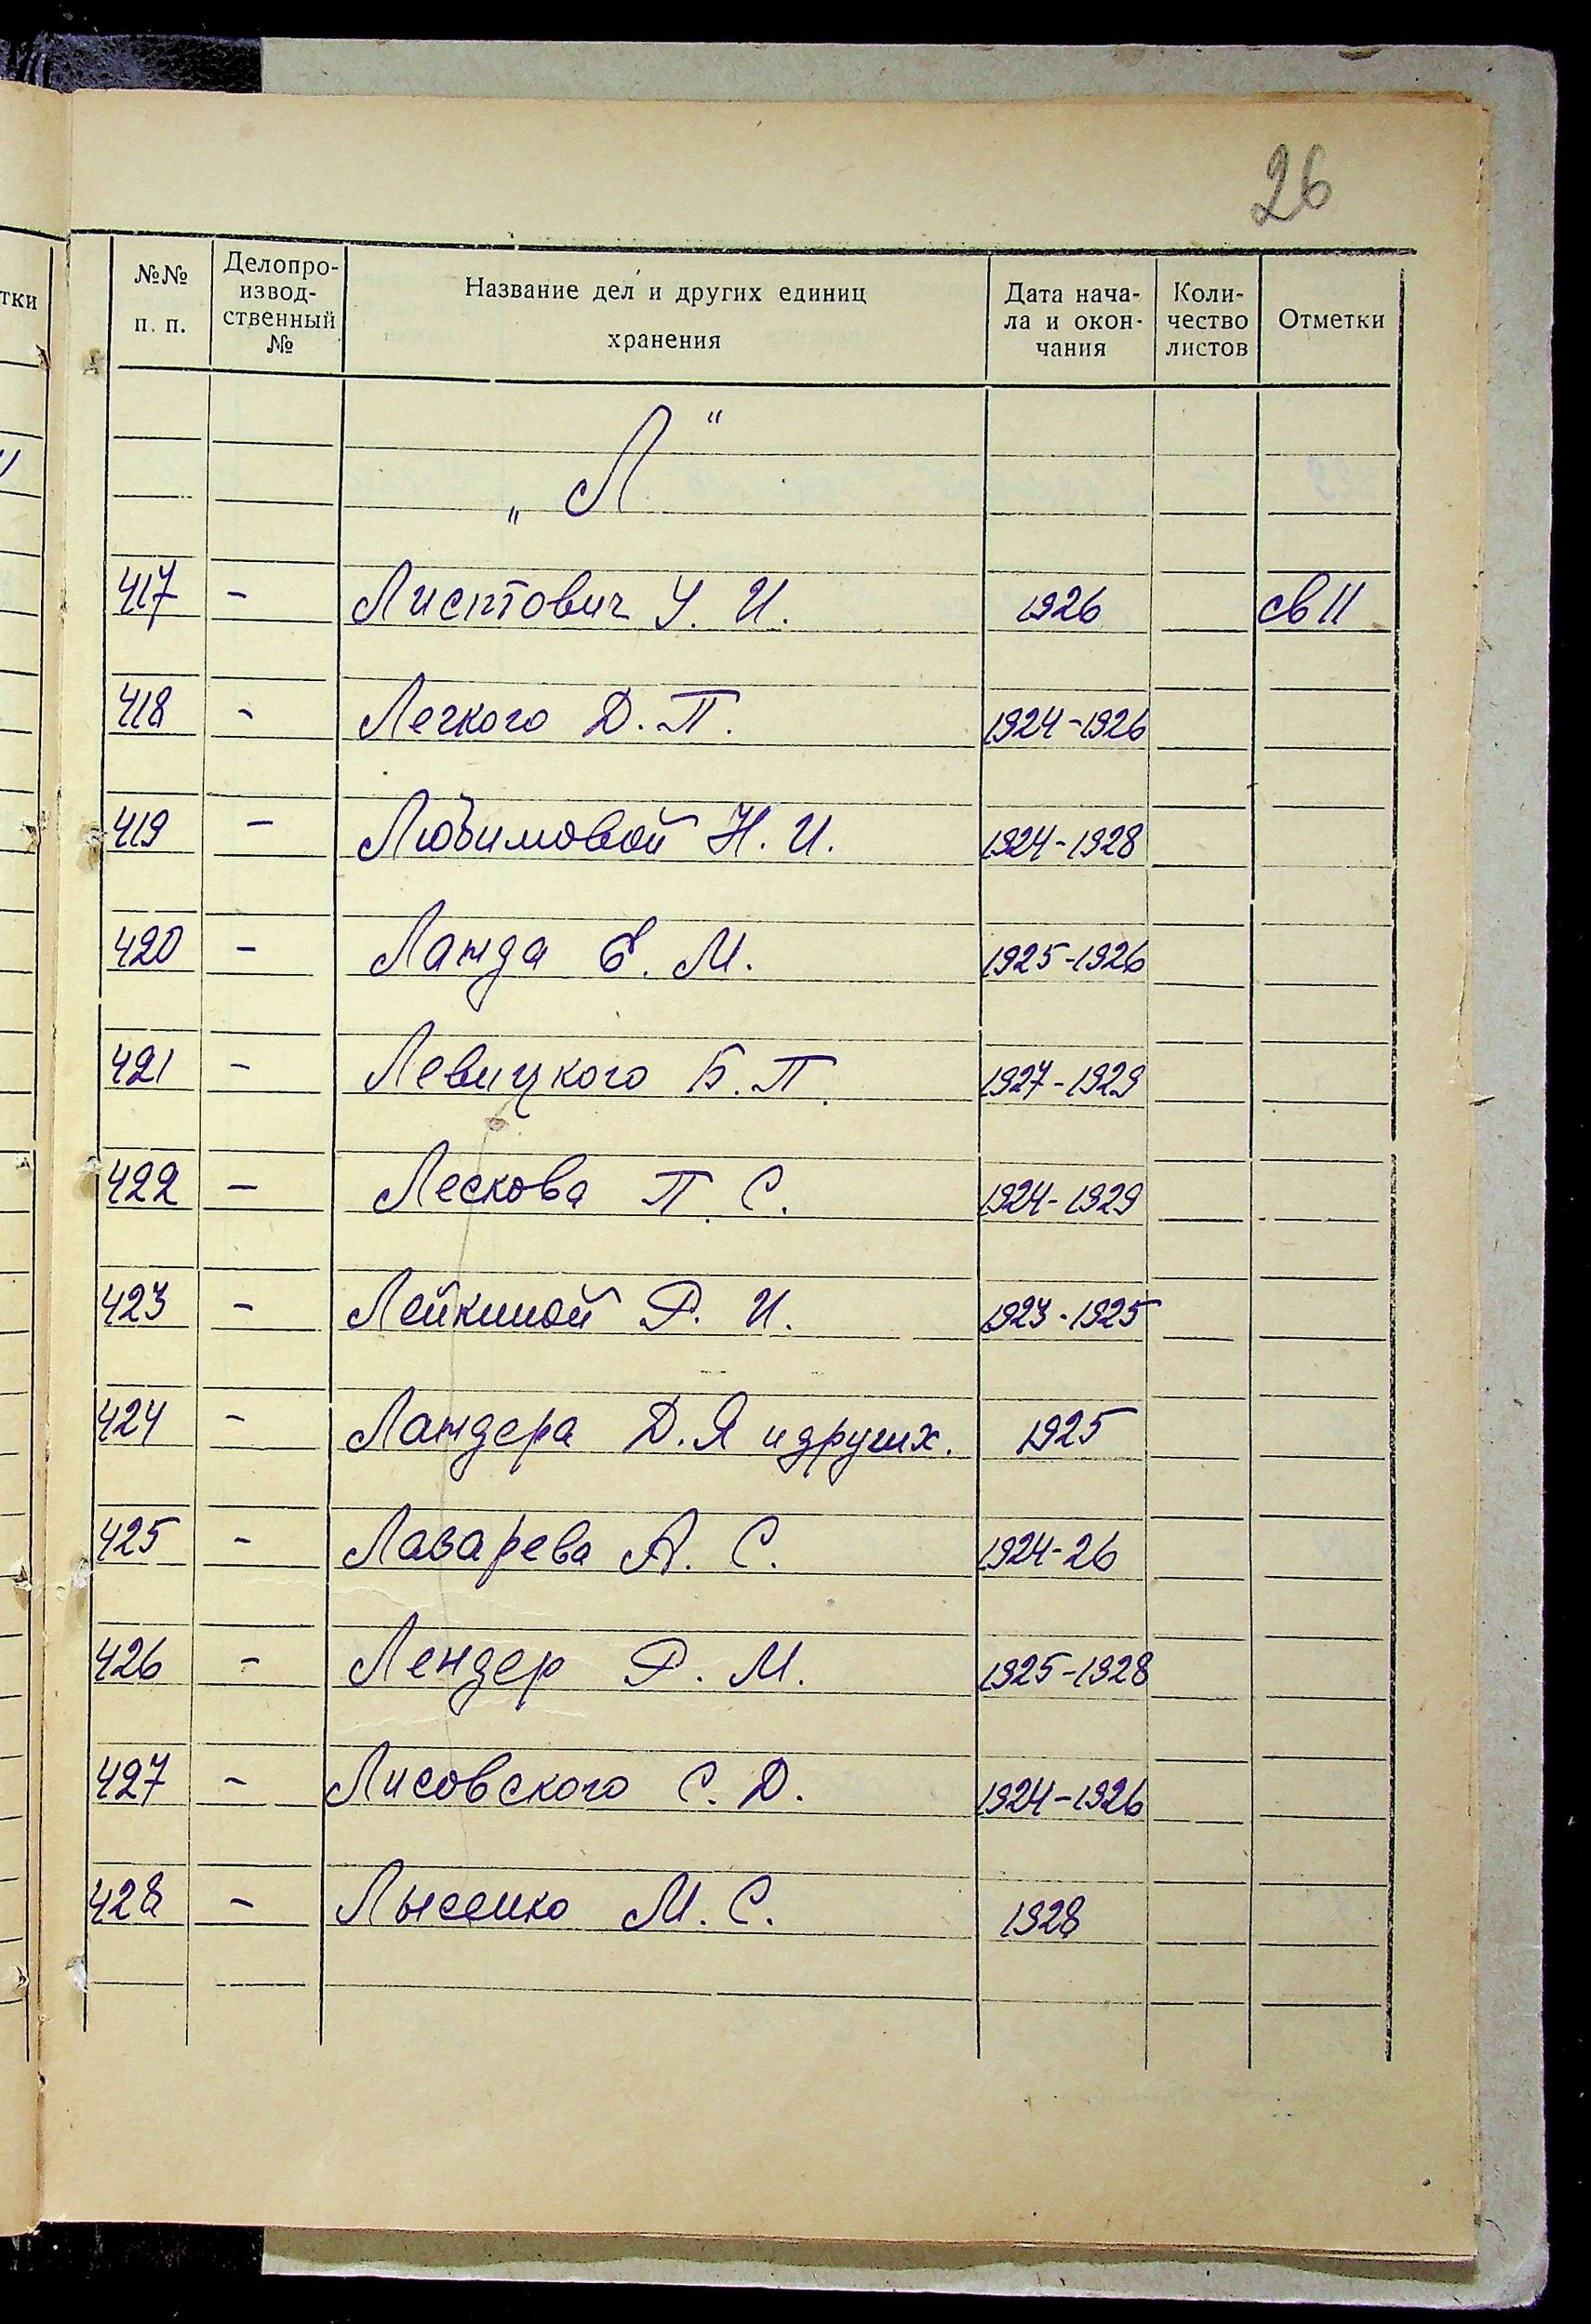 26
тки
№№ п. п. Делопро-извод-ственный № Название дел и других единиц хранения Дата нача-ла и окон-чания Коли-чество листов Отметки
„Л“
417 - Листович У. И. 1926 св 11
418 - Легкого Д. П. 1924-1926
419 - Любимовой Н. И. 1924-1928
420 - Ланда Е. М. 1925-1926
421 - Левицкого Б. П. 1927-1929
422 - Лескова П. С. 1924-1929
423 - Лейкиной Р. И. 1923-1925
424 - Ландера Д. Я и других. 1925
425 - Лазарева А. С. 1924-26
426 - Лендер Р. М. 1925-1928
427 - Лисовского С. Д. 1924-1926
428 - Лысенко М. С. 1928